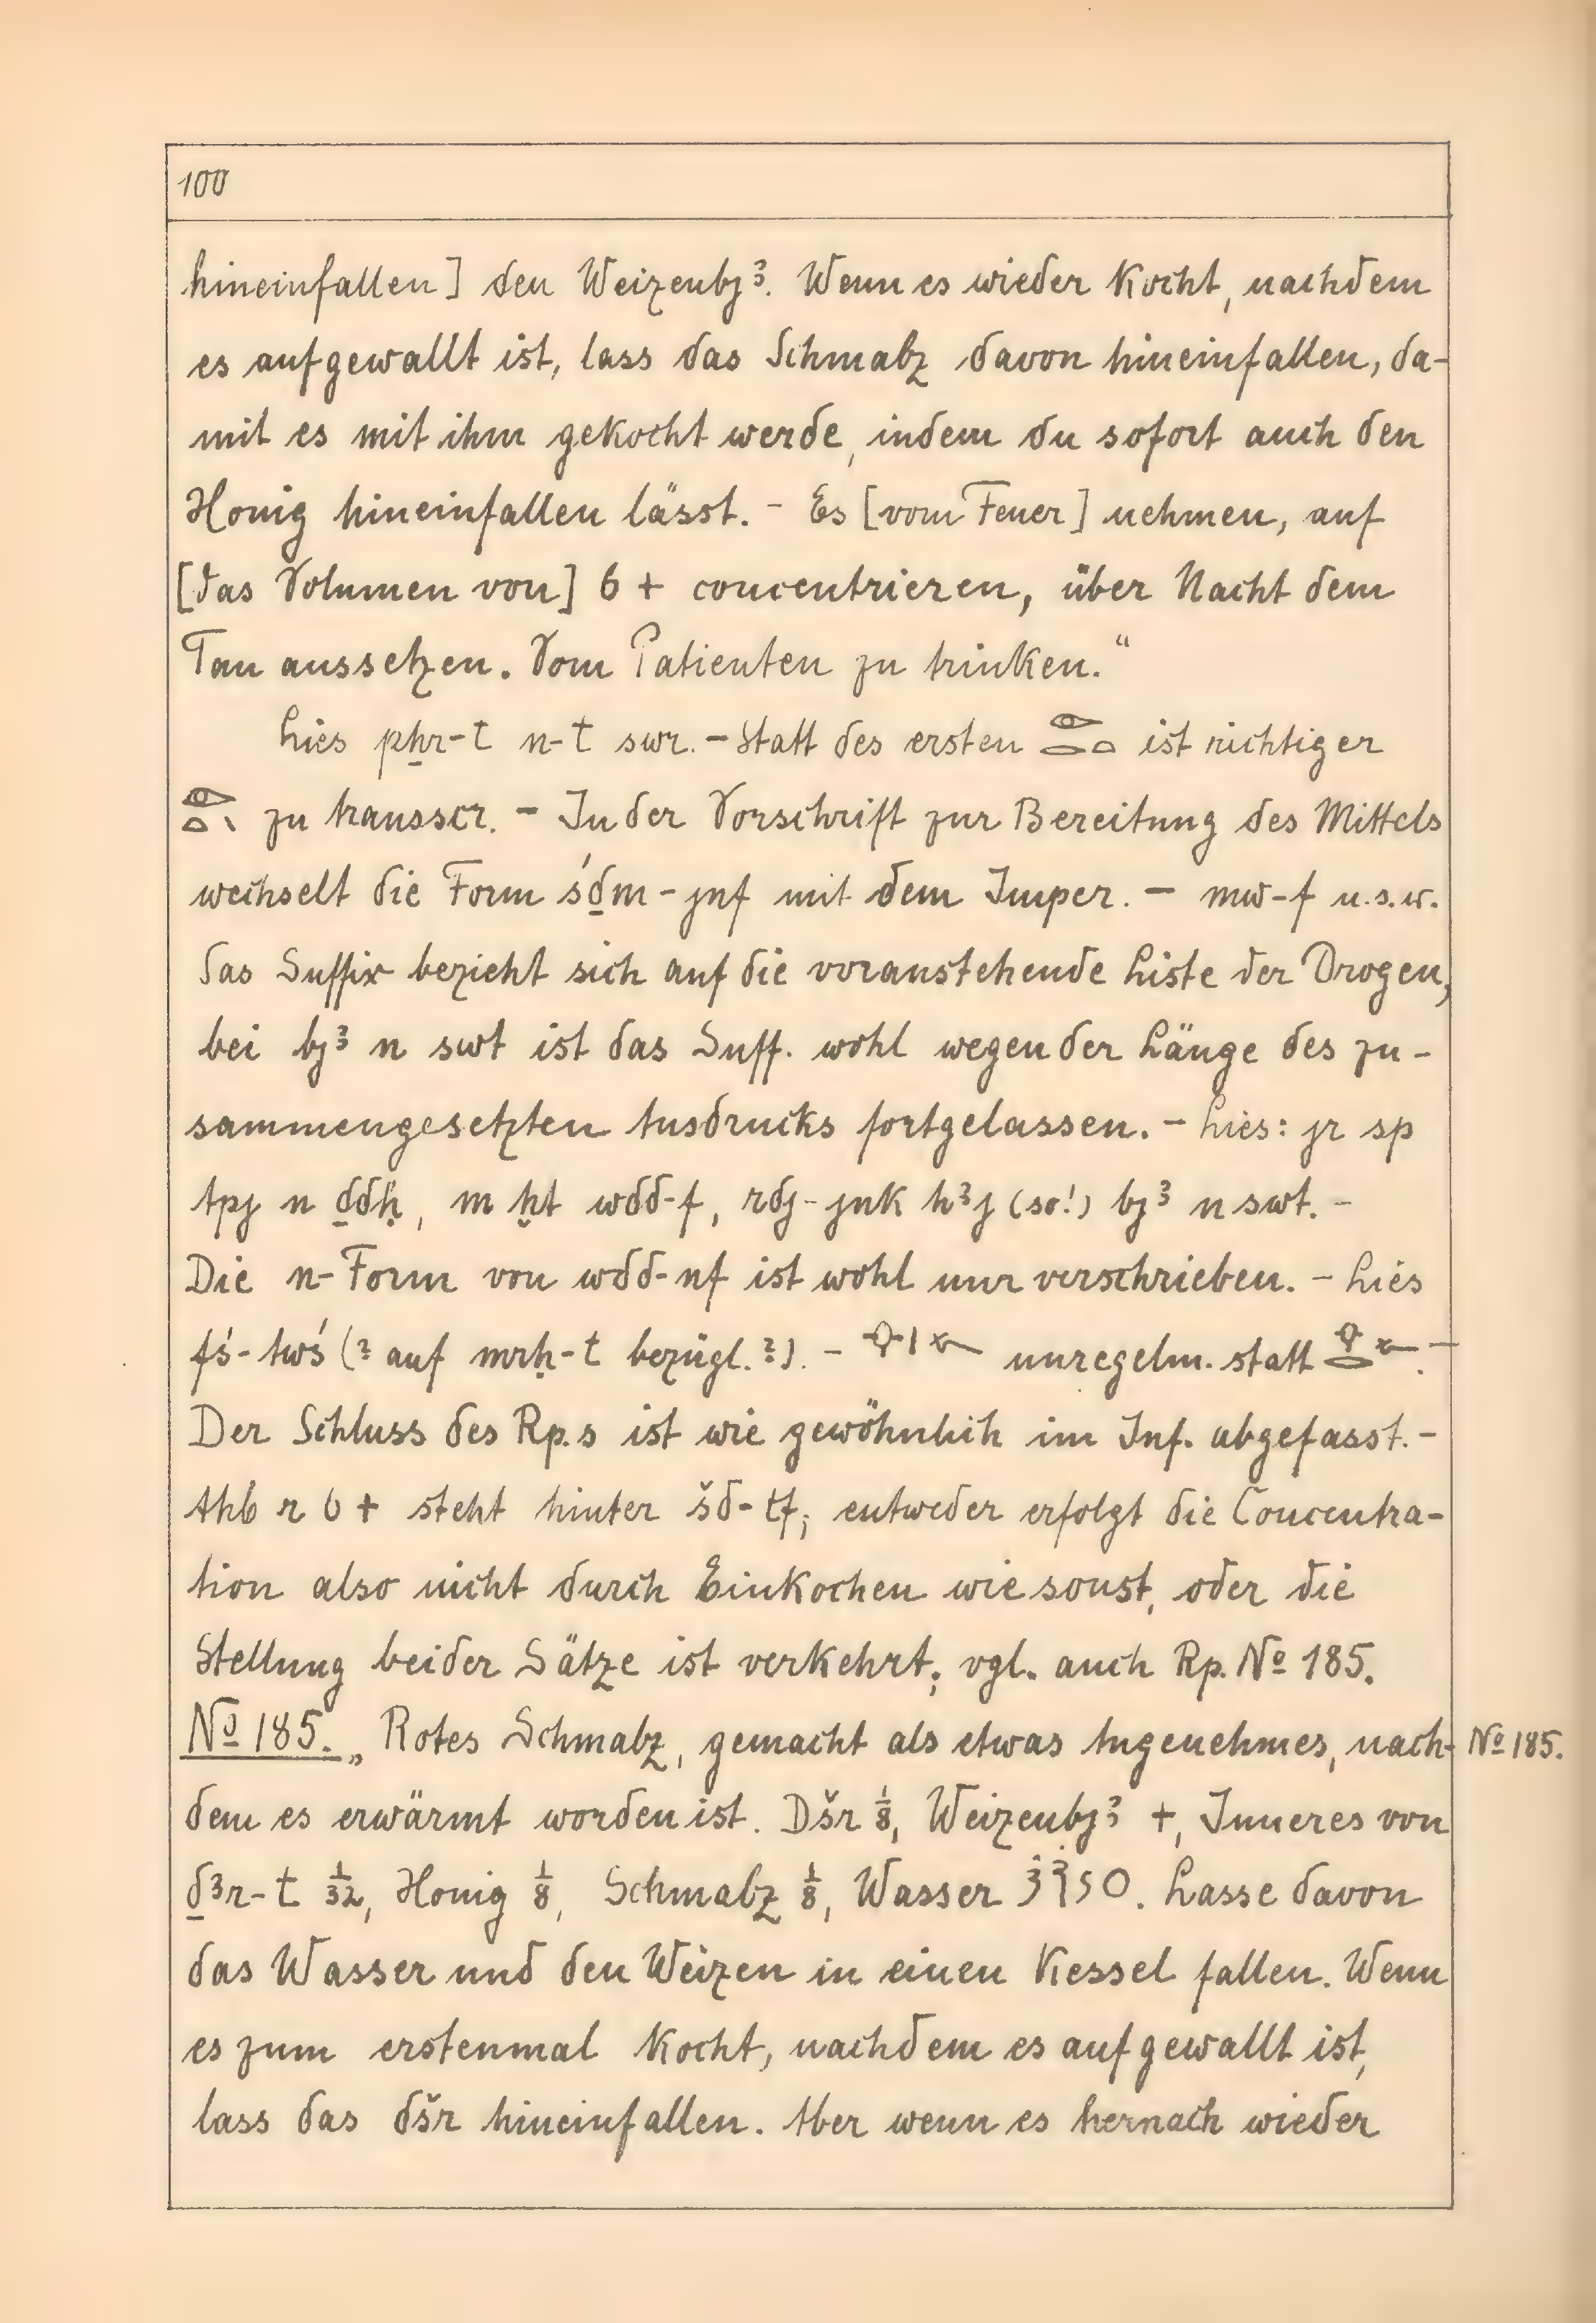 100
hineinfallen] den Weizenbjꜣ. Wenn es wieder kocht, nachdem
es aufgewallt ist, lass das Schmalz davon hineinfallen, da-
mit es mit ihm gekocht werde, indem du sofort auch den
Honig hineinfallen lässt. - Es [vom Feuer] nehmen, auf
[das Volumen von] 6 + concentrieren, über Nacht dem
Tau aussetzen. Vom Patienten zu trinken.“
Lies pẖr-t n-t swr. - Statt des ersten ist richtiger
zu transscr. - In der Vorschrift zur Bereitung des Mittels
wechselt die Form śḏm-jnf mit dem Imper. - mw-f u.s.w.
Das Suffix bezieht sich auf die voranstehende Liste der Drogen,
bei bjꜣ n swt ist das Suff. wohl wegen der Länge des zu-
sammengesetzten Ausdrucks fortgelassen. - Lies: jr sp
tpj n ḏdḥ, m ḫt wdd-f, rdj-jnk hꜣj (so!) bjꜣ n swt. -
Die n-Form von wdd-nf ist wohl nur verschrieben. - Lies
fś-twś (? auf mrḥ-t bezügl. ?). - unregelm. statt . -
Der Schluss des Rp.s ist wie gewöhnlich im Inf. abgefasst. -
Ahb r 6 + steht hinter šd-tf; entweder erfolgt die Concentra-
tion also nicht durch Einkochen wie sonst, oder die
Stellung beider Sätze ist verkehrt; vgl. auch Rp. No 185.
No 185. „Rotes Schmalz, gemacht als etwas Angenehmes, nach- No 185.
dem es erwärmt worden ist. Dšr 1/8, Weizenbjꜣ +, Inneres von
ḏꜣr-t 1/32, Honig 1/8, Schmalz 1/8, Wasser . Lasse davon
das Wasser und den Weizen in einen Kessel fallen. Wenn
es zum erstenmal kocht, nachdem es aufgewallt ist,
lass das dšr hineinfallen. Aber wenn es hernach wieder